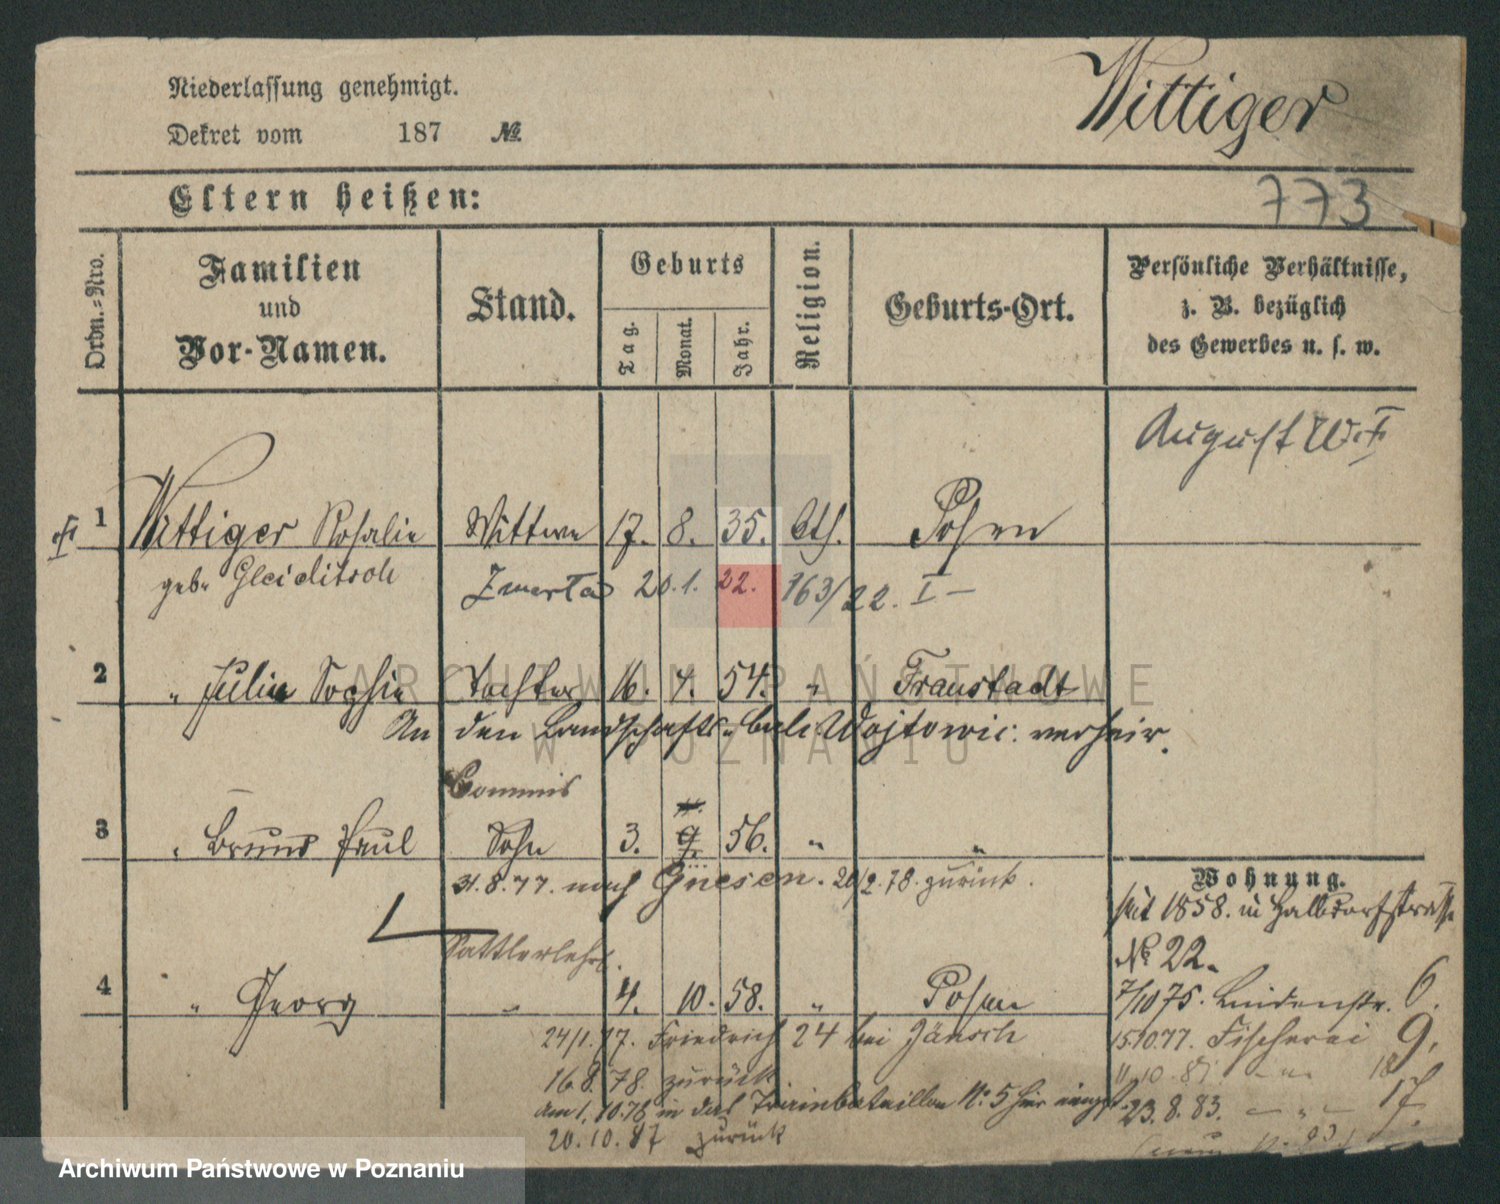 Niederlassung genehmigt.
Wittiger
Dekret vom 187 №
773
Eltern heißen:
Ordn.-Nro.
Familien und Vor-Namen.
Stand.
Geburts
Tag.
Monat.
Jahr.
Religion.
Geburts-Ort.
Persönliche Verhältnisse,
z. B. bezüglich
des Gewerbes u. s. w.
August W.
1 Wittiger Rosalie Wittwe 17. 8. 35. Posen
geb. Gleiditsch Zmarła 20.1.22. 163/22. I —
2 " Julie Sophie Tochter 16. 4. 54. " Fraustadt
An den Landschafts- Wojtowic. verheir.
Commis
3 " Bruno Paul Sohn 3. 9. 56. " "
31.8.77. nach Gnesen. 20/2.78. zurück.
Wohnung.
seit 1858. in Halbdorfstrasse
№ 22.
Sattlerlehrl.
4 " Georg " 4. 10. 58. " Posen
7/10 75. Lindenstr. 6.
24/1.77. Friedrich 24 bei Jänsch
15.10.77. Fischerei 9.
16.8.78. zurück
am 1.10.78 in das Trainbataillon № 5 hier
23.8.83. — " — 17.
20.10.87 zurück
ARCHIWUM PAŃSTWOWE
W POZNANIU
Archiwum Państwowe w Poznaniu